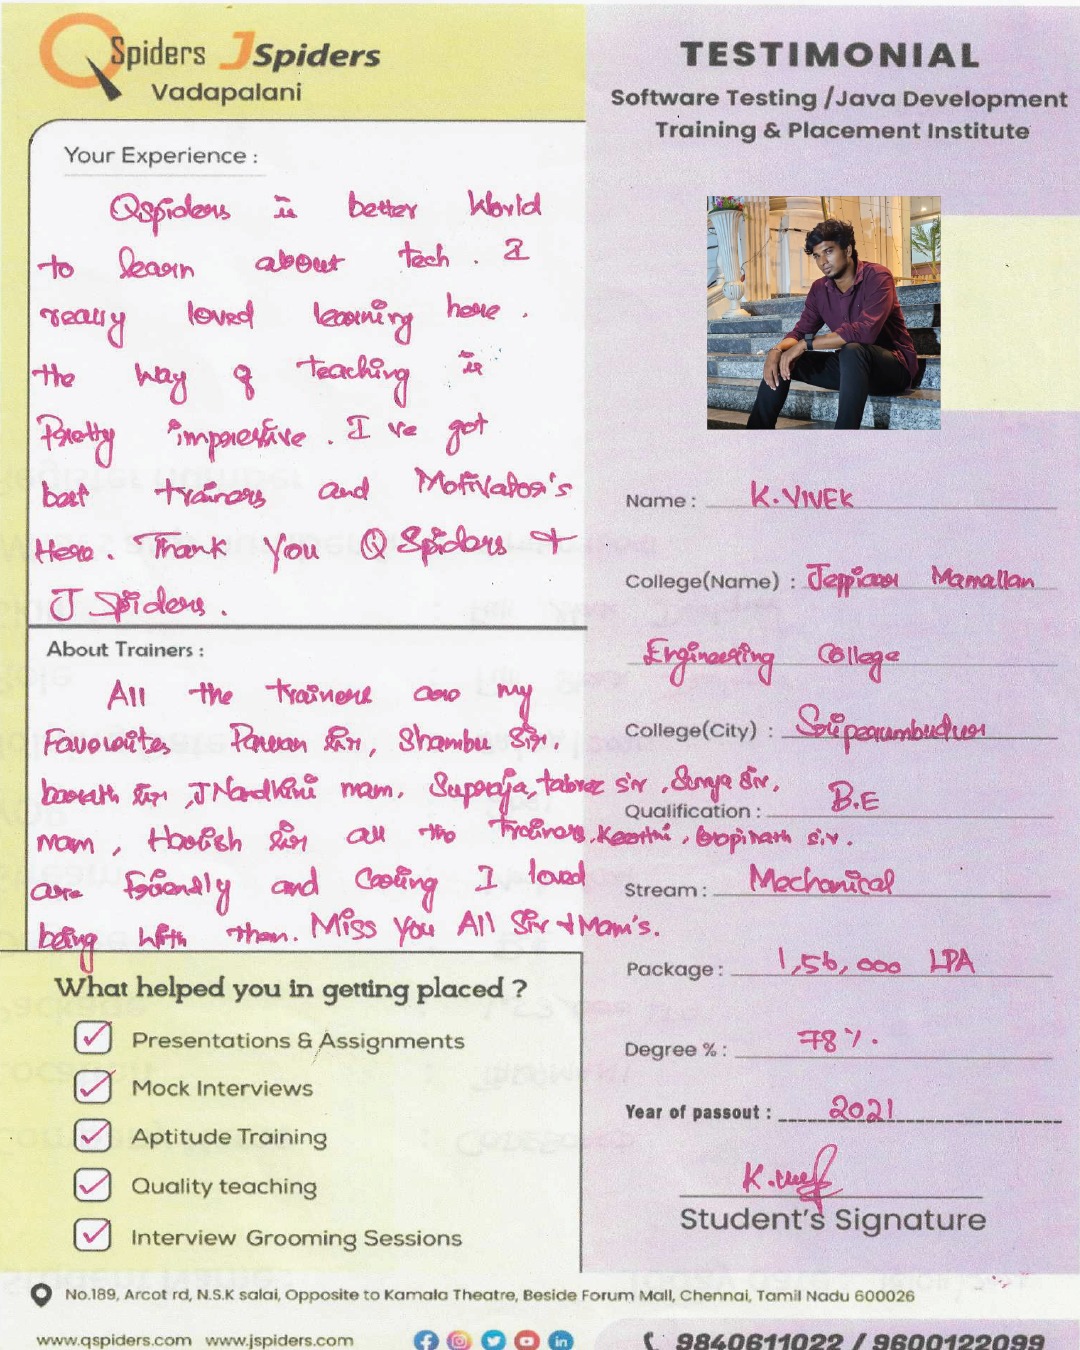 QSpiders JSpiders
Vadapalani
TESTIMONIAL
Software Testing /Java Development
Training & Placement Institute
Your Experience :
Qspiders is better World
to learn about tech. I
really loved learning here.
the way of teaching is
Pretty impressive. I've got
best trainers and Motivator's
Here. Thank You Q Spiders &
J Spiders.
About Trainers :
All the trainers are my
Favourites Pavan Sir, Shambu Sir.
barath Sir, J Nandhini mam. Supraja, tabrez sir, Surya Sir,
mam, Harish Sir all the trainers, Keerthi, Gopinath sir.
are friendly and Caring I loved
being with them. Miss You All Sir & Mam's.
What helped you in getting placed ?
Presentations & Assignments
Mock Interviews
Aptitude Training
Quality teaching
Interview Grooming Sessions
Name : K.VIVEK
College(Name) : Jeppiaar Mamallan
Engineering College
College(City) : Sriperumbudur
Qualification : B.E
Stream : Mechanical
Package : 1,56,000 LPA
Degree % : 78 %.
Year of passout : 2021
Student's Signature
No.189, Arcot rd, N.S.K salai, Opposite to Kamala Theatre, Beside Forum Mall, Chennai, Tamil Nadu 600026
www.qspiders.com www.jspiders.com
9840611022 / 9600122099